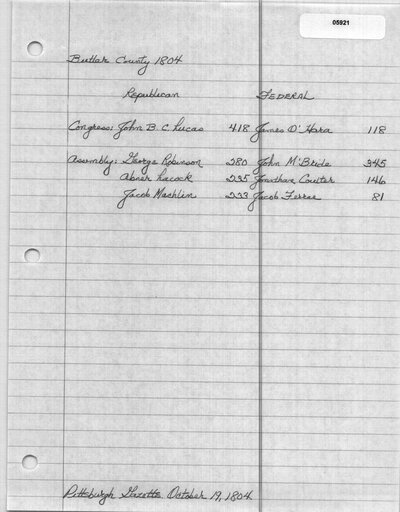 05921
Butler County 1804
Republican FEDERAL
Congress: John B. C. Lucas 418 James O'Hara 118
Assembly: George Robinson 280 John M'Bride 345
Abner Lacock 235 Jonathan Coulter 146
Jacob Mechlin 233 Jacob Ferree 81
Pittsburgh Gazette October 19, 1804